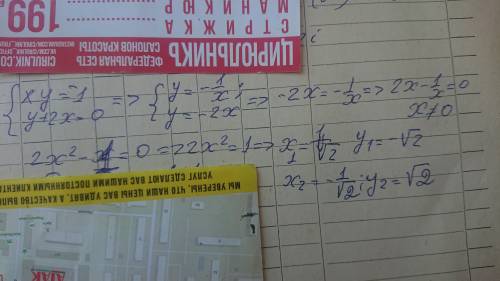 199
СТРИЖКА
МАНИКЮР
ЦИРЮЛЬНИКЪ
ФЕДЕРАЛЬНАЯ СЕТЬ
САЛОНОВ КРАСОТЫ
CIRULNIK.CO
{xy=-1 => {y=-1/x; => -2x=-1/x => 2x-1/x=0
{y+2x=0 {y=-2x x≠0
2x²-1=0 => 2x²=1 => x₁=1/√2 y₁=-√2
x₂=-1/√2; y₂=√2
МЫ УВЕРЕНЫ, ЧТО НАШИ ЦЕНЫ ВАС УДИВЯТ, КАЧЕСТВО
УСЛУГ СДЕЛАЮТ ВАС НАШИМИ ПОСТОЯННЫМИ КЛИЕНТАМИ
АТАК